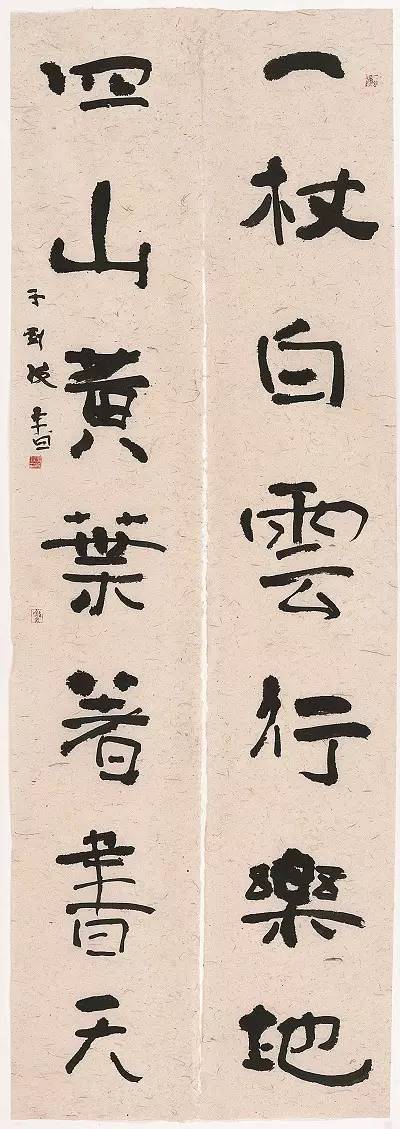 一杖白雲行樂地
四山黃葉著書天